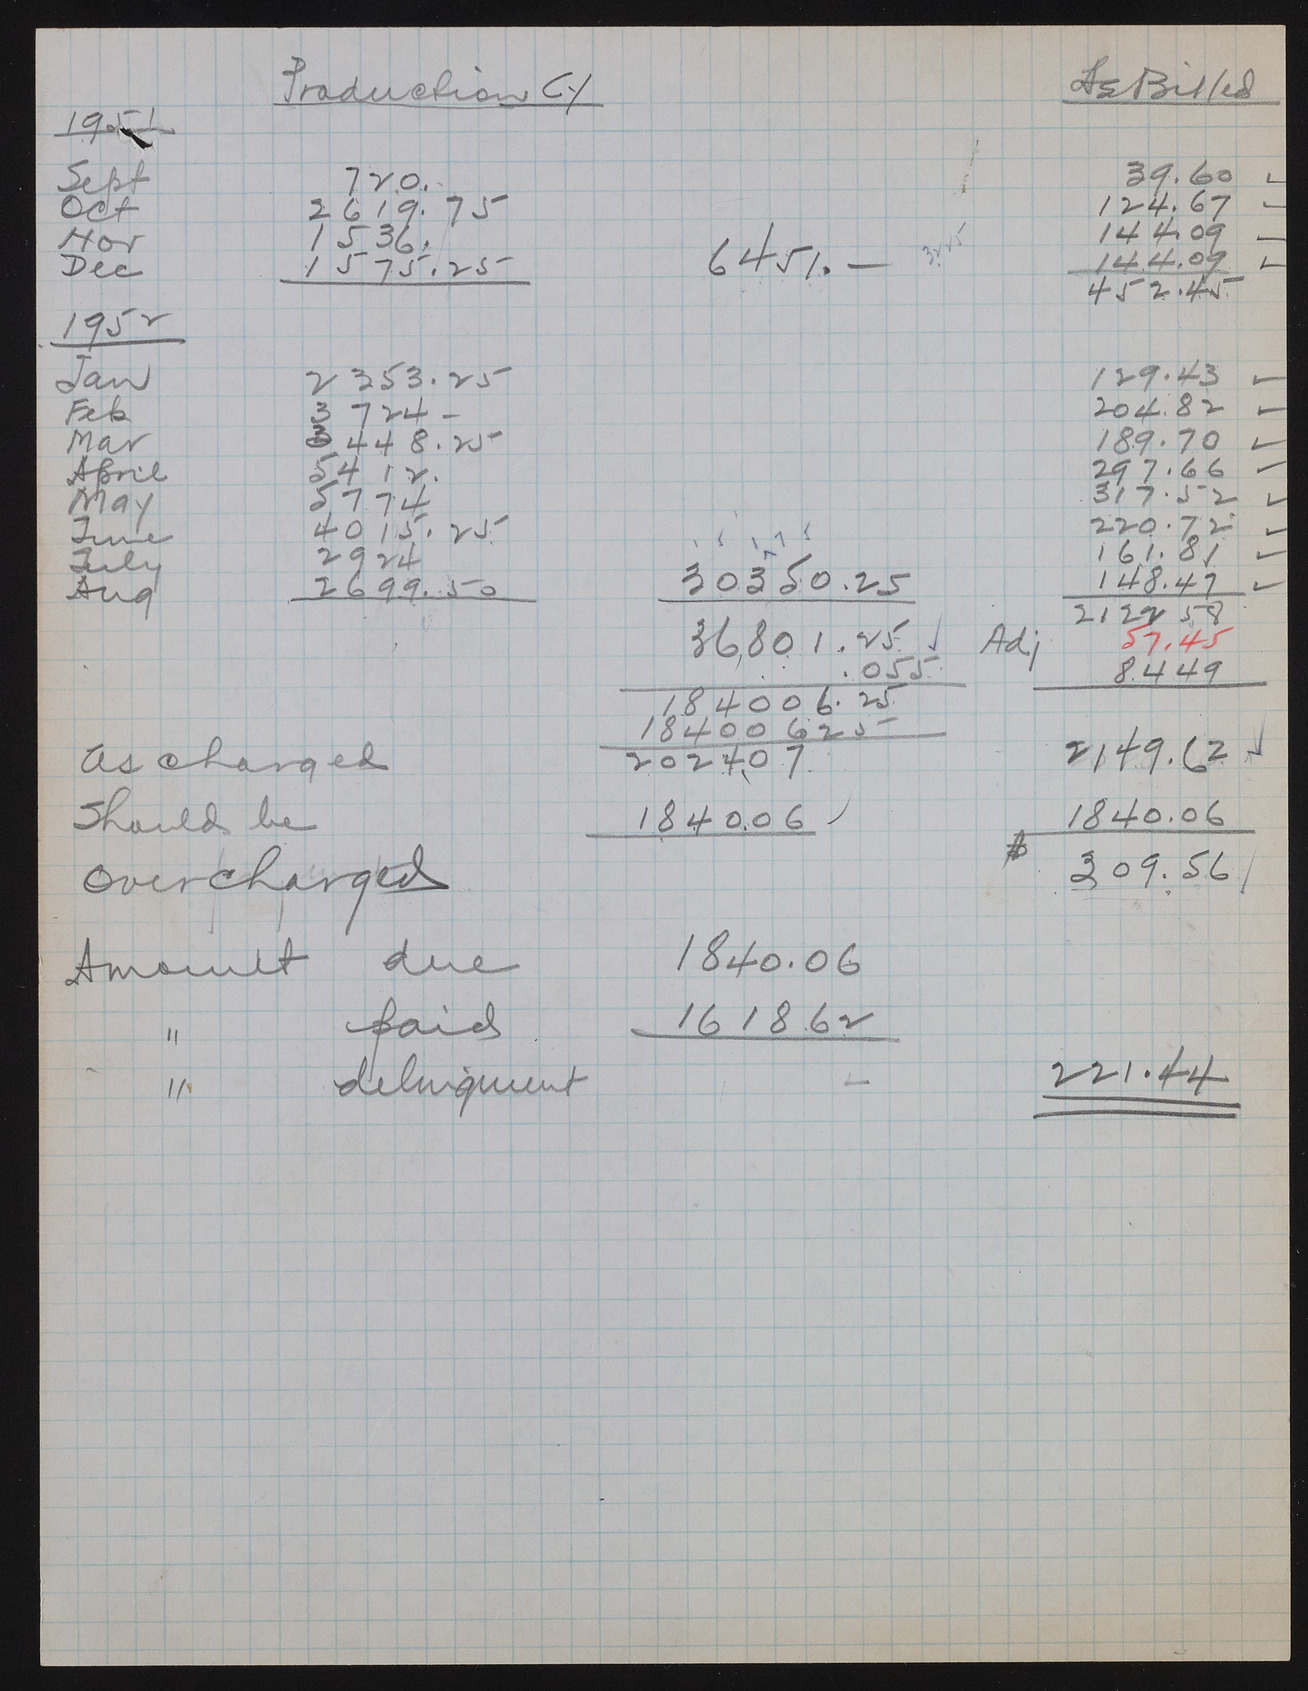 Production CY As Billed
1951
Sept 720. 39.60
Oct 2619.75 124.67
Nov 1536. 144.09
Dec 1575.25 6451.— 144.09
452.45
1952
Jan 2353.25 129.43
Feb 3724- 204.82
Mar 3448.25 189.70
April 5412. 297.66
May 5774 317.52
June 4015.25 220.72
July 2924 161.81
Aug 2699.50 30350.25 148.47
2122 58
36,801.25 Adj 57.45
.055 84.49
184006.25
18400625
As charged 202407 2149.62
Should be 1840.06 1840.06
Overcharged $ 309.56
Amount due 1840.06
" paid 1618.62
" delinquent 221.44